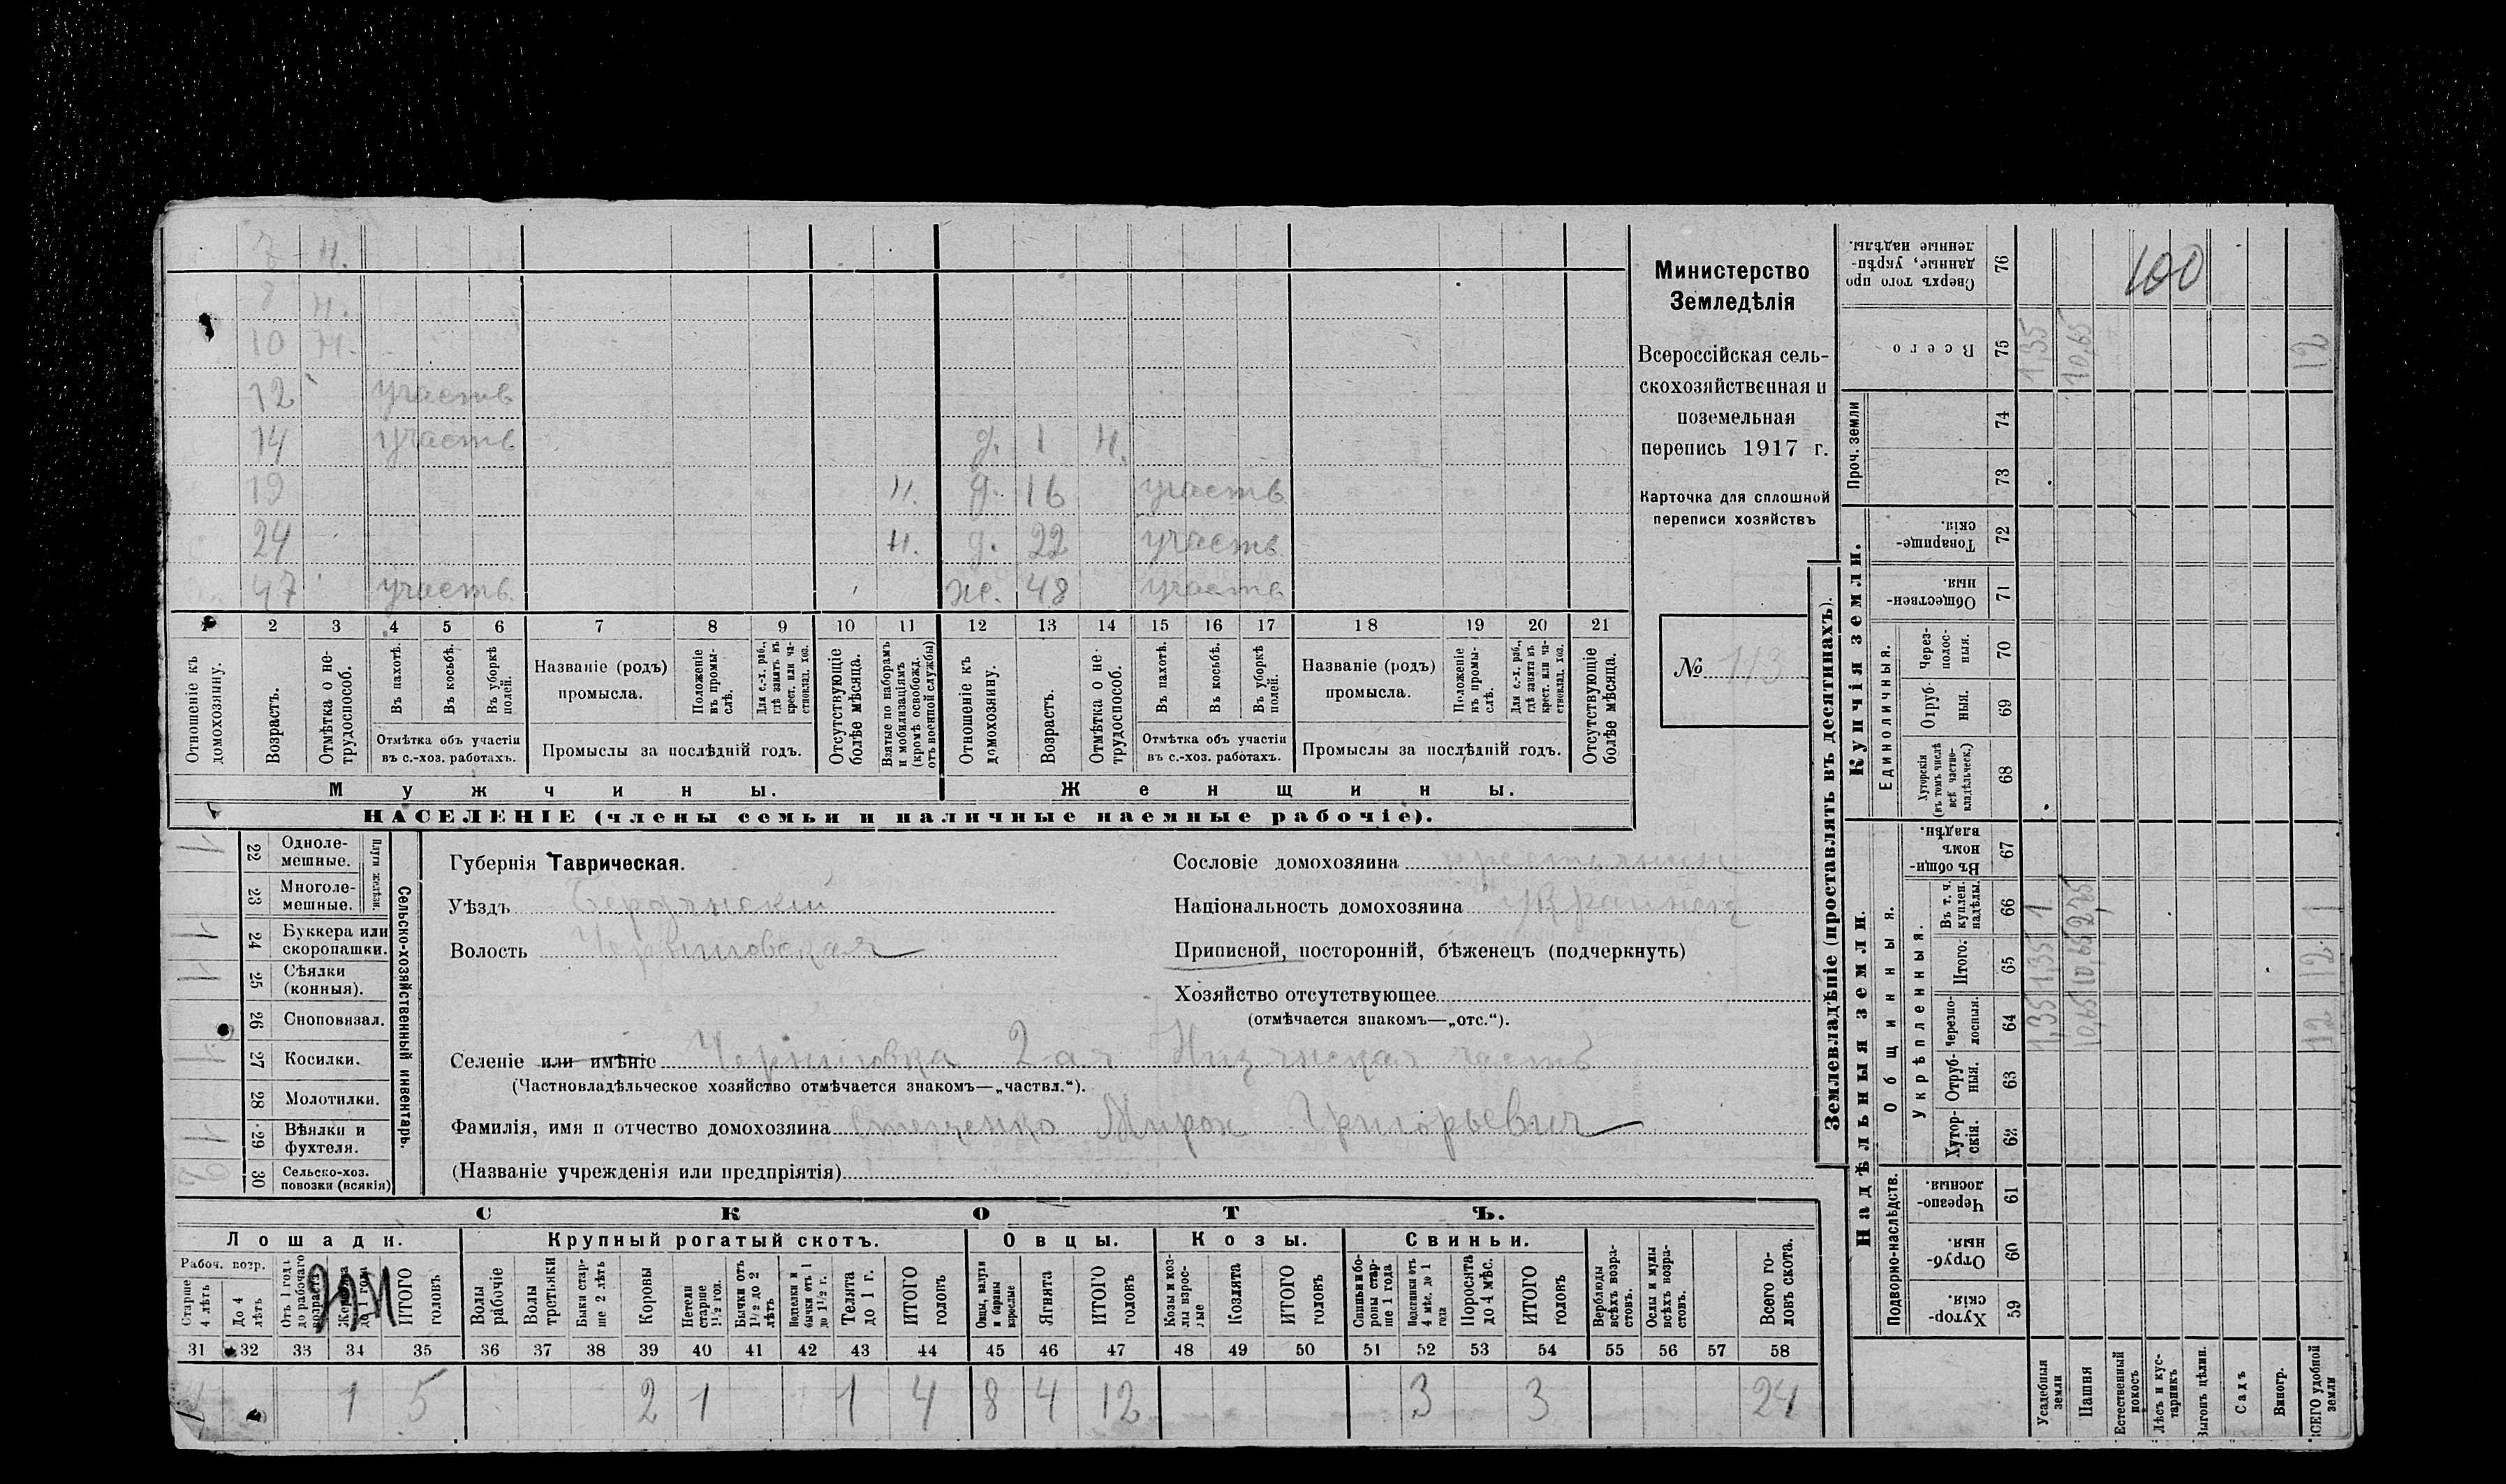 3 н.
8 н.
10 н.
12 участв
14 участв д. 1 н.
19 н. д. 16 участв
24 н. д. 22 участв
47 участв. ж. 48 участв
1 2 3 4 5 6 7 8 9 10 11 12 13 14 15 16 17 18 19 20 21
Отношеніе къ домохозяину.
Возрастъ.
Отмѣтка о не-трудоспособ.
Въ пахотѣ.
Въ косьбѣ.
Въ уборкѣ полей.
Отмѣтка объ участіи
въ с.-хоз. работахъ.
Названіе (родъ)
промысла.
Положеніе въ промы-слѣ.
Для с.-х. раб., гдѣ занятъ въ крест. или ча-стновлад. хоз.
Промыслы за послѣдній годъ.
Отсутствующіе болѣе мѣсяца.
Взятые по наборамъ и мобилизаціямъ (кромѣ освобожд. отъ военной службы)
Отношеніе къ домохозяину.
Возрастъ.
Отмѣтка о не-трудоспособ.
Въ пахотѣ.
Въ косьбѣ.
Въ уборкѣ полей.
Отмѣтка объ участіи
въ с.-хоз. работахъ.
Названіе (родъ)
промысла.
Положеніе въ промы-слѣ.
Для с.-х. раб., гдѣ занята въ крест. или ча-стновлад. хоз.
Промыслы за послѣдній годъ.
Отсутствующіе болѣе мѣсяца.
Мужчины. Женщины.
НАСЕЛЕНІЕ (члены семьи и наличные наемные рабочіе).
Министерство
Земледѣлія
Всероссійская сель-
скохозяйственная и
поземельная
перепись 1917 г.
Карточка для сплошной
переписи хозяйствъ
№ 113
Сельско-хозяйственный инвентарь.
Плуги желѣзн.
22 Одноле-мешные. 1
23 Многоле-мешные.
24 Буккера или скоропашки. 1
25 Сѣялки (конныя). 1
26 Сноповязал.
27 Косилки. 1
28 Молотилки.
29 Вѣялки и фухтеля. 1
30 Сельско-хоз. повозки (всякія) 2
Губернія Таврическая.
Уѣздъ Бердянскій
Волость Черниговская
Сословіе домохозяина крестьянин
Національность домохозяина украинец
Приписной, посторонній, бѣженецъ (подчеркнуть)
Хозяйство отсутствующее
(отмѣчается знакомъ—„отс.“).
Селеніе или имѣніе Черниговка 2-ая Низянская часть
(Частновладѣльческое хозяйство отмѣчается знакомъ—„частвл.“).
Фамилія, имя и отчество домохозяина Стеценко Мирон Григорьевич
(Названіе учрежденія или предпріятія)
СКОТЪ.
Лошади. Крупный рогатый скотъ. Овцы. Козы. Свиньи.
Рабоч. возр.
Старше 4 лѣтъ
До 4 лѣтъ
Отъ 1 года до рабочаго возраста
до 1 года
ИТОГО головъ
Волы рабочіе
Волы третьяки
Быки стар-ше 2 лѣтъ
Коровы
Нетели старше 1½ год.
Бычки отъ 1½ до 2 лѣтъ
Подтелки и бычки отъ 1 до 1½ г.
Телята до 1 г.
ИТОГО головъ
Овцы, валухи и бараны взрослые
Ягнята
ИТОГО головъ
Козы и коз-лы взрос-лые
Козлята
ИТОГО головъ
Свиньи и бо-ровы стар-ше 1 года
Подсвинки отъ 4 мѣс. до 1 года
Поросята до 4 мѣс.
ИТОГО головъ
Верблюды всѣхъ возра-стовъ.
Ослы и мулы всѣхъ возра-стовъ.
Всего го-ловъ скота.
31 32 33 34 35 36 37 38 39 40 41 42 43 44 45 46 47 48 49 50 51 52 53 54 55 56 57 58
1 5 2 1 1 4 8 4 12 3 3 24
Землевладѣніе (проставлять въ десятинахъ).
Сверхъ того про-данные, укрѣп-ленные надѣлы. 76
100
Всего 75 1,35 10,65 12
Проч. земли 74 73
Купчія земли.
Товарище-скія. 72
Обществен-ныя. 71
Единоличныя.
Через-полос-ныя. 70
Отруб-ныя. 69
Хуторскія (въ томъ числѣ всѣ частно-владѣльческ.) 68
Надѣльныя земли.
Общинныя.
Въ общи-номъ владѣн. 67
Укрѣпленныя.
Въ т. ч. куплен. надѣлы. 66 1 1
Итого. 65 1,35 10,65 12
Черезпо-лосныя. 64 1,35 10,65 12
Отруб-ныя. 63
Хутор-скія. 62
Подворно-наслѣдств.
Черезпо-лосныя. 61
Отруб-ныя. 60
Хутор-скія. 59
Усадебныя земли
Пашня
Естественный покосъ
Лѣсъ и кус-тарникъ
Выгонъ цѣлин.
Садъ
Виногр.
ВСЕГО удобной земли